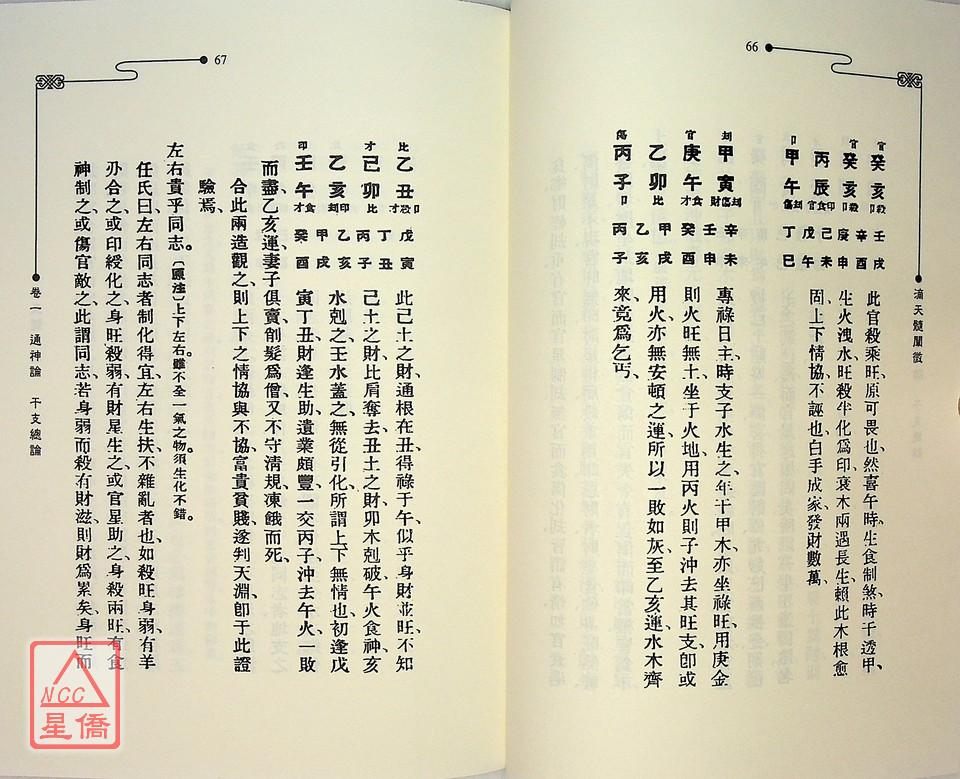 66
滴天髓闡微
官 癸亥 殺印 壬戌
官 癸亥 殺印 辛酉
丙辰 印食官 庚申
印 甲午 刼傷 己未
戊午
丁巳
此官殺乘旺、原可畏也、然喜午時、生食制煞、時干透甲、
生火洩水、旺殺半化爲印、衰木兩遇長生、賴此木根愈
固、上下情協不誣也、白手成家、發財數萬、
刼 甲寅 刼傷財 辛未
官 庚午 食才 壬申
乙卯 比 癸酉
傷 丙子 卩 甲戌
乙亥
丙子
專祿日主、時支子水生之、年干甲木、亦坐祿旺、用庚金
則火旺無土、坐于火地、用丙火則子沖去其旺支、卽或
用火、亦無安頓之運、所以一敗如灰、至乙亥運、水木齊
來、竟爲乞丐、
67
卷一　通神論　干支總論
比 乙丑 卩殺才 戊寅
才 己卯 比 丁丑
乙亥 印刼 丙子
印 壬午 食才 乙亥
甲戌
癸酉
此己土之財、通根在丑、得祿于午、似乎身財並旺、不知
己土之財、比肩奪去、丑土之財、卯木剋破、午火食神、亥
水剋之、壬水蓋之、無從引化、所謂上下無情也、初逢戊
寅丁丑、財逢生助、遺業頗豐、一交丙子、沖去午火、一敗
而盡、乙亥運、妻子俱賣、削髮爲僧、又不守淸規、凍餓而死、
合此兩造觀之、則上下之情協與不協、富貴貧賤、遂判天淵、卽于此證
驗焉、
左右貴乎同志。〔原注〕上下左右。雖不全一氣之物。須生化不錯。
任氏曰、左右同志者、制化得宜、左右生扶、不雜亂者也、如殺旺身弱、有羊
刅合之、或印綬化之、身旺殺弱、有財星生之、或官星助之、身殺兩旺、有食
神制之、或傷官敵之、此謂同志、若身弱而殺有財滋、則財爲累矣、身旺而
NCC
星僑